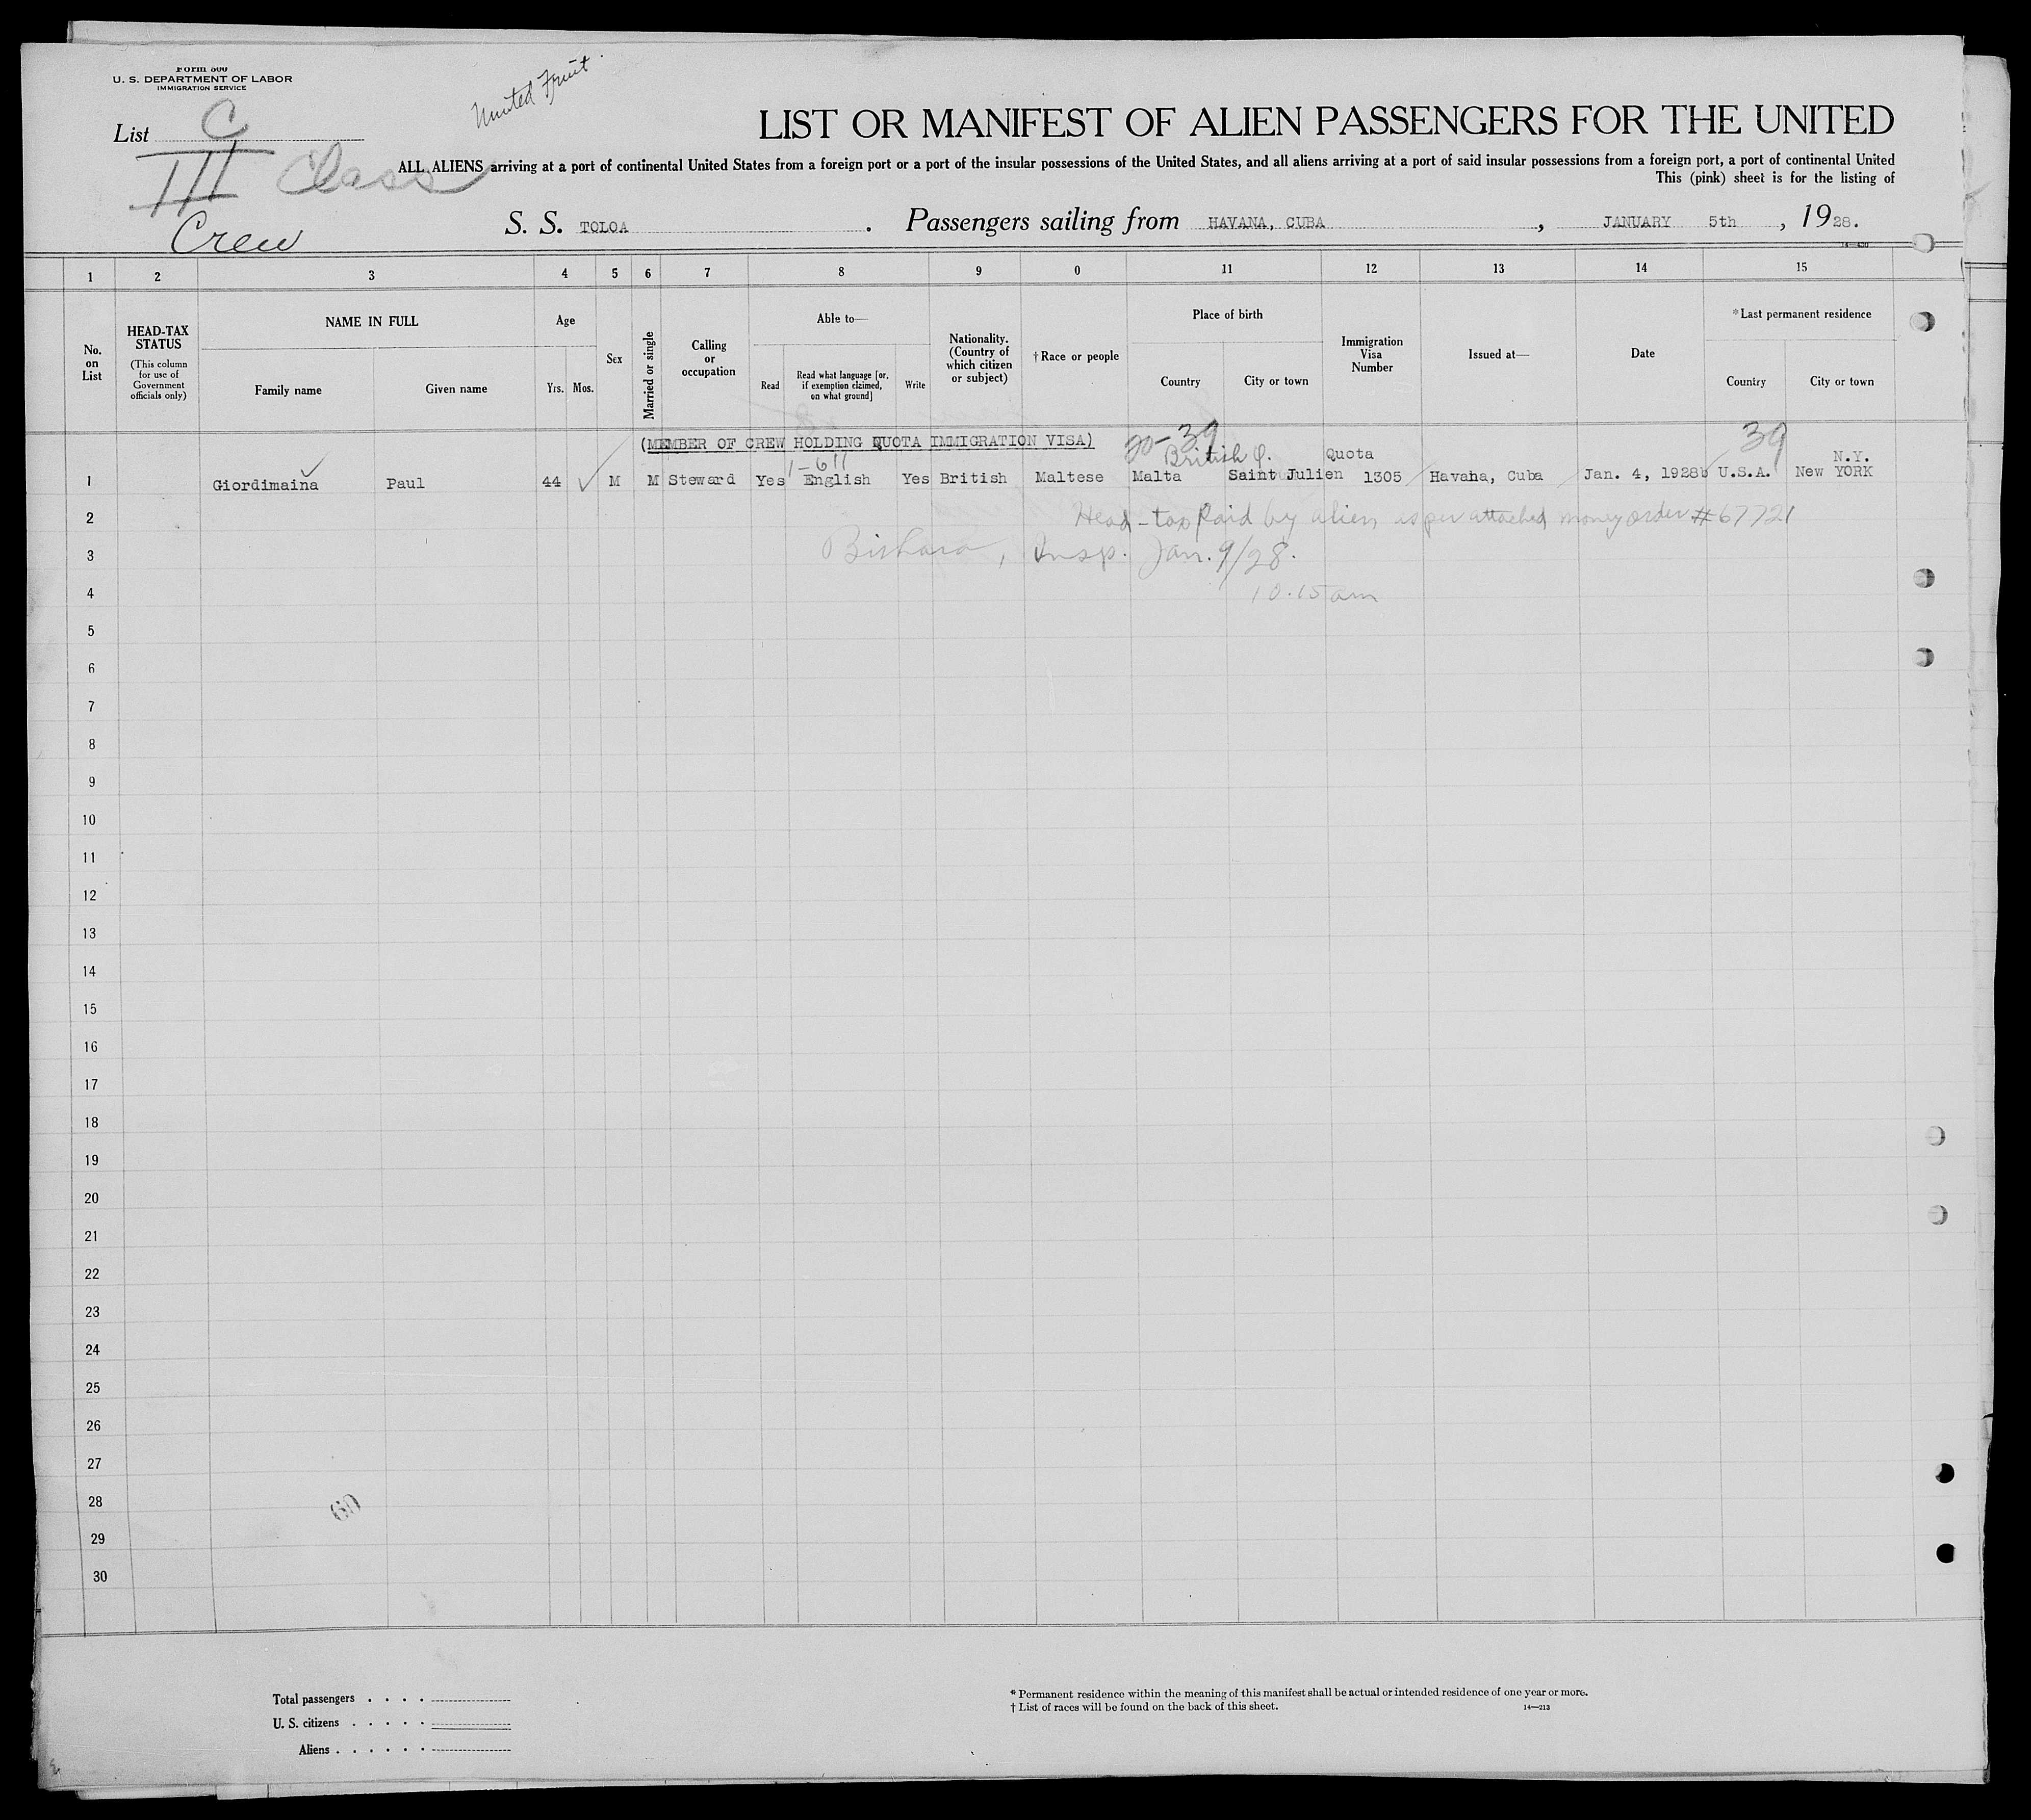 Form 500
U. S. DEPARTMENT OF LABOR
IMMIGRATION SERVICE
United Fruit.
List C
III Class
Crew
LIST OR MANIFEST OF ALIEN PASSENGERS FOR THE UNITED
ALL ALIENS arriving at a port of continental United States from a foreign port or a port of the insular possessions of the United States, and all aliens arriving at a port of said insular possessions from a foreign port, a port of continental United
This (pink) sheet is for the listing of
S. S. TOLOA . Passengers sailing from HAVANA, CUBA , JANUARY 5th , 1928.
1 2 3 4 5 6 7 8 9 0 11 12 13 14 15
No. on List
HEAD-TAX STATUS
(This column for use of Government officials only)
NAME IN FULL
Family name Given name
Age
Yrs. Mos.
Sex
Married or single
Calling or occupation
Able to—
Read
Read what language [or, if exemption claimed, on what ground]
Write
Nationality. (Country of which citizen or subject)
†Race or people
Place of birth
Country City or town
Immigration Visa Number
Issued at—
Date
*Last permanent residence
Country City or town
(MEMBER OF CREW HOLDING QUOTA IMMIGRATION VISA) 20-39 39
1-611 British Q. Quota N.Y.
1 Giordimaina Paul 44 M M Steward Yes English Yes British Maltese Malta Saint Julien 1305 Havana, Cuba Jan. 4, 1928 U.S.A. New YORK
2 Head-tax Paid by alien, as per attached money order #67721
3 Insp. Jan. 9/28.
4 10.15 am
5
6
7
8
9
10
11
12
13
14
15
16
17
18
19
20
21
22
23
24
25
26
27
28 60
29
30
Total passengers . . . .
U. S. citizens . . . . .
Aliens . . . . . .
* Permanent residence within the meaning of this manifest shall be actual or intended residence of one year or more.
† List of races will be found on the back of this sheet. 14—213